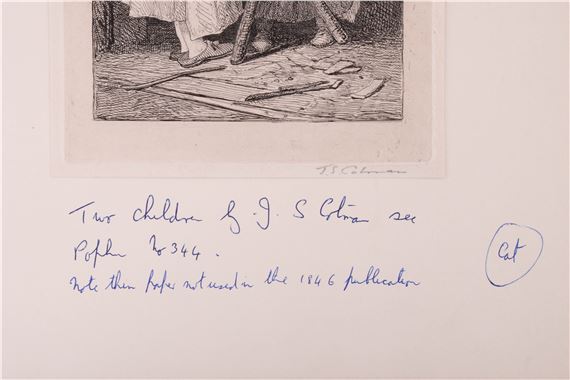 J.S. Cotman
Two children by J S Cotman see
Popham No 344.
Note thin paper not used in the 1846 publication
Cat